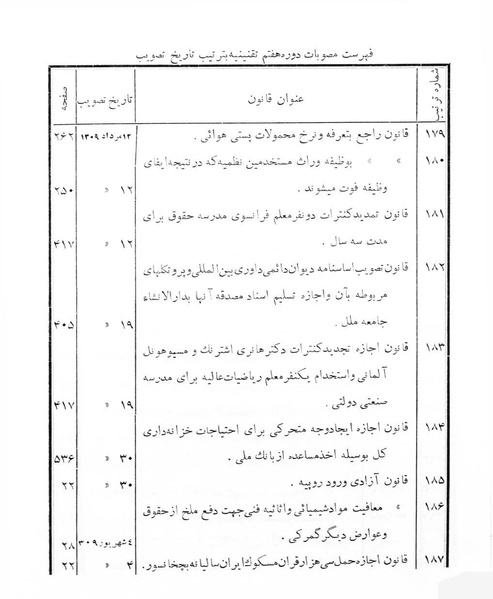 فهرست مصوبات دوره هفتم تقنینیه بترتیب تاریخ تصویب
شماره ترتیب عنوان قانون تاریخ تصویب صفحه
۱۷۹ قانون راجع بتعرفه ونرخ محمولات پستی هوائی . ۱۲ مرداد ۱۳۰۹ ۲۶۲
۱۸۰ » » بوظیفه وراث مستخدمین نظمیه که در نتیجه ایفای
وظیفه فوت میشوند . ۱۲ » ۲۵۰
۱۸۱ قانون تمدید کنترات دونفر معلم فرانسوی مدرسه حقوق برای
مدت سه سال . ۱۲ » ۴۱۷
۱۸۲ قانون تصویب اساسنامه دیوان دائمی داوری بین المللی و پروتکلهای
مربوطه بآن واجازه تسلیم اسناد مصدقه آنها بدارالانشاء
جامعه ملل . ۱۹ » ۴۰۵
۱۸۳ قانون اجازه تجدید کنترات دکتر هانری اشترنک و مسیو هونل
آلمانی واستخدام یکنفر معلم ریاضیات عالیه برای مدرسه
صنعتی دولتی . ۱۹ » ۴۱۷
۱۸۴ قانون اجازه ایجاد وجه متحرکی برای احتیاجات خزانه داری
کل بوسیله اخذ مساعده از بانک ملی . ۳۰ » ۵۳۶
۱۸۵ قانون آزادی ورود روپیه . ۳۰ » ۲۲
۱۸۶ » معافیت مواد شیمیائی و اثاثیه فنی جهت دفع ملخ از حقوق
وعوارض دیگر گمرکی . ٤ شهریور ۳۰۹ ۲۸
۱۸۷ قانون اجازه حمل سی هزار قران مسکوک ایران سالیانه بچخانسور. ۴ » ۲۲